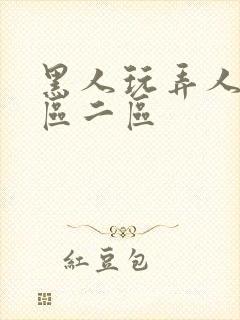 黑人玩弄人
區二區
紅豆包